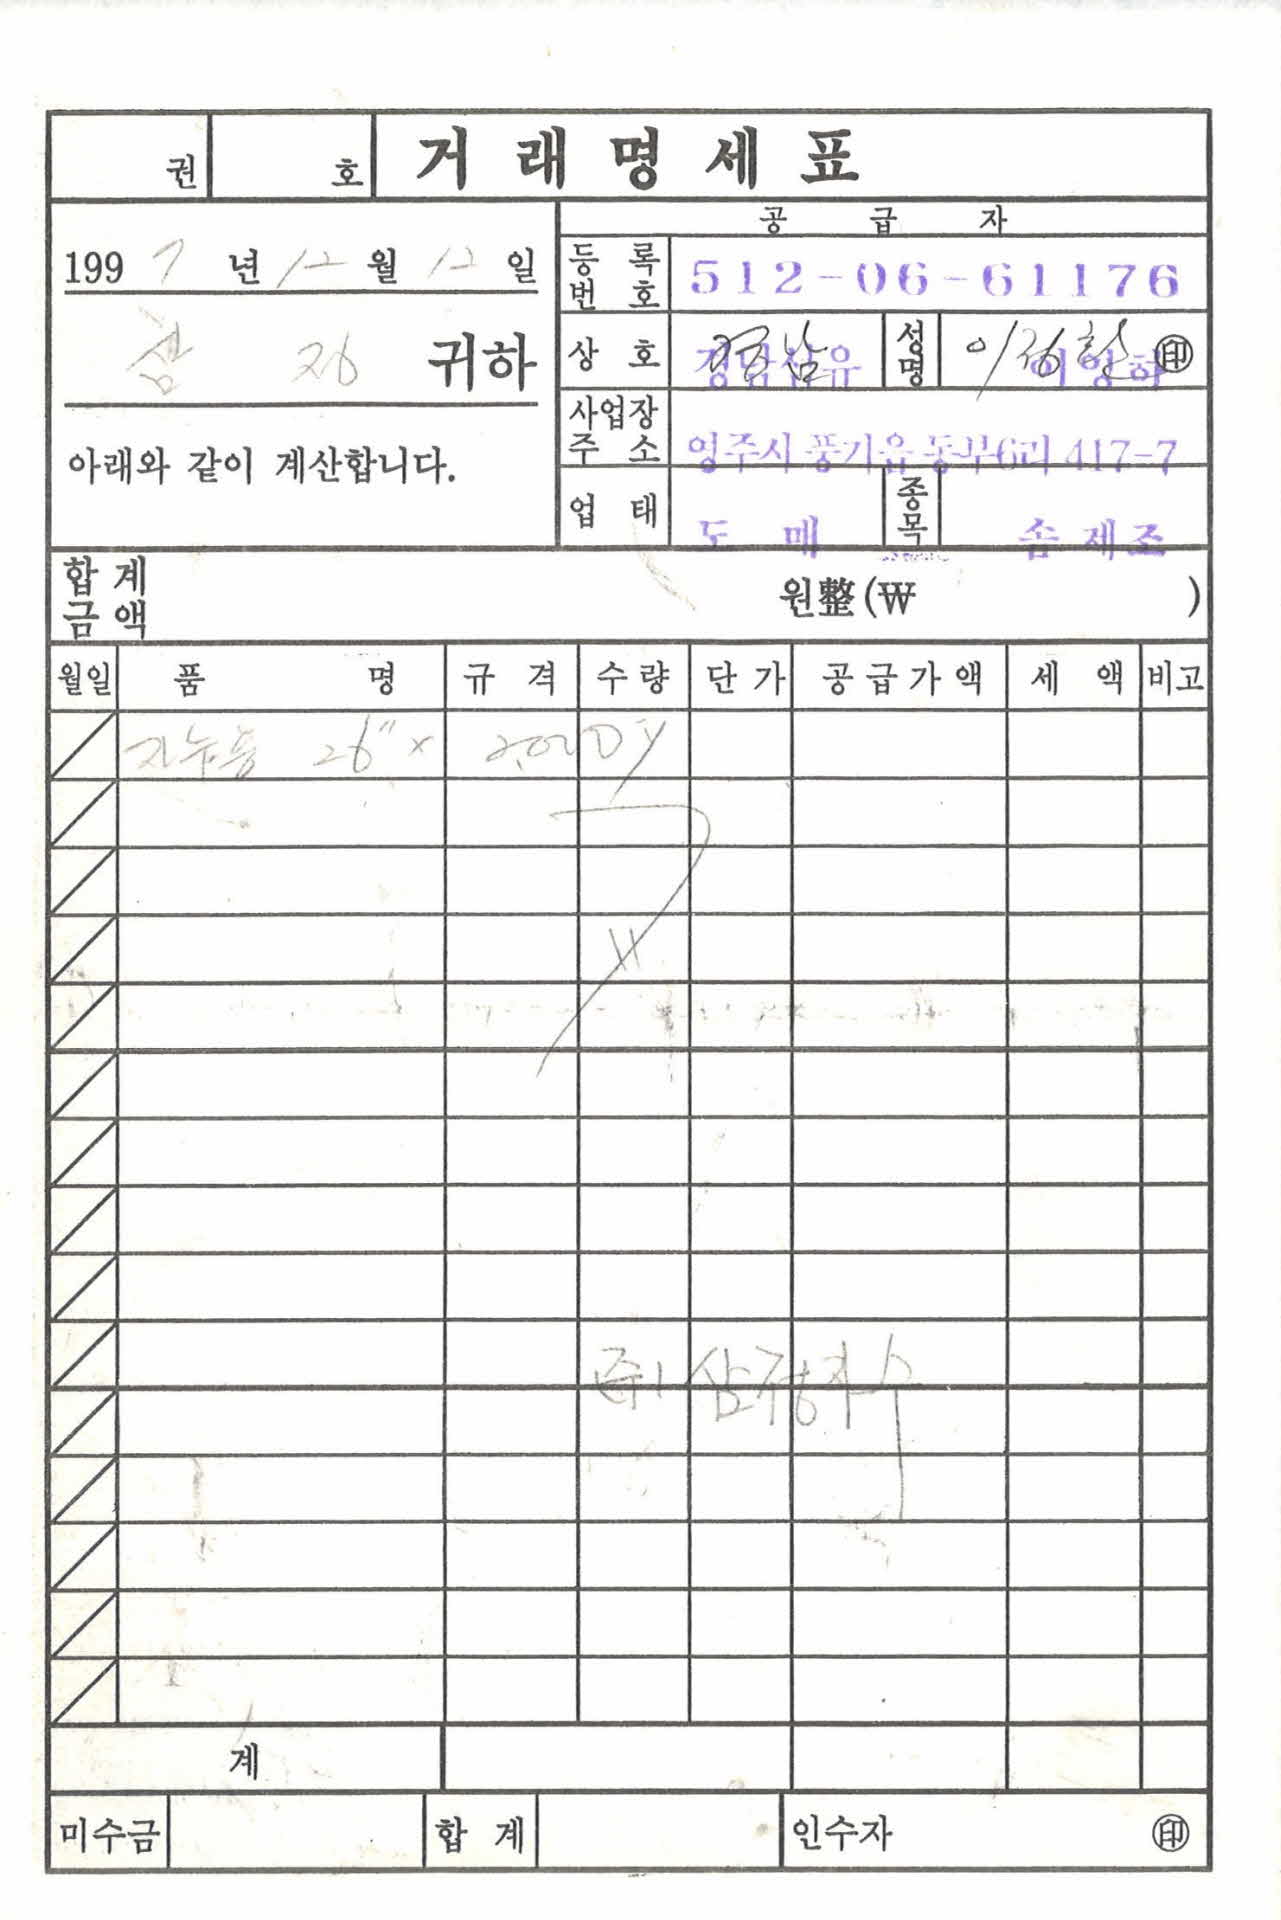 권 호 거래명세표
공급자
1997년 12월 12일
등록번호 512-06-61176
삼정 귀하
상호 경남섬유 성명 이영하 印
사업장주소 영주시 풍기읍 동부6리 417-7
아래와 같이 계산합니다.
업태 도매 종목 솜제조
합계금액 원整(₩ )
월일 품명 규격 수량 단가 공급가액 세액 비고
자누용 26"× 2,000y
(주) 삼정자수
계
미수금 합계 인수자 印